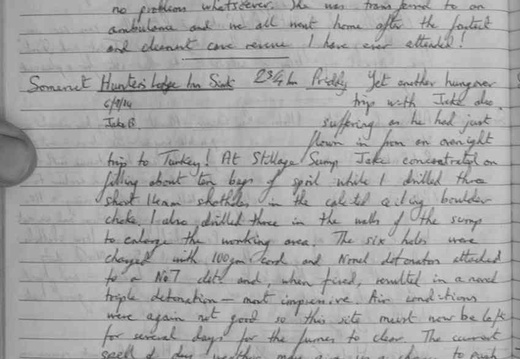 no problems whatsoever. She was transferred to an
ambulance and we all went home after the fastest
and cleanest cave rescue I have ever attended!
Somerset Hunters' Lodge Inn Sink 2 3/4 hrs Priddy Yet another hungover
6/8/14 trip with Jake also
Jake B suffering as he had just
flown in from an overnight
trip to Turkey! At Stillage Sump Jake concentrated on
filling about ten bags of spoil while I drilled three
short 16mm shotholes in the calcited ceiling boulder
choke. I also drilled three in the walls of the sump
to enlarge the working area. The six holes were
charged with 100gm cord and Nonel detonators attached
to a No7 det and, when fired, resulted in a novel
triple detonation – most impressive. Air conditions
were again not good so this site must now be left
for several days for the fumes to clear. The current
spell of dry weather may give us a chance to push